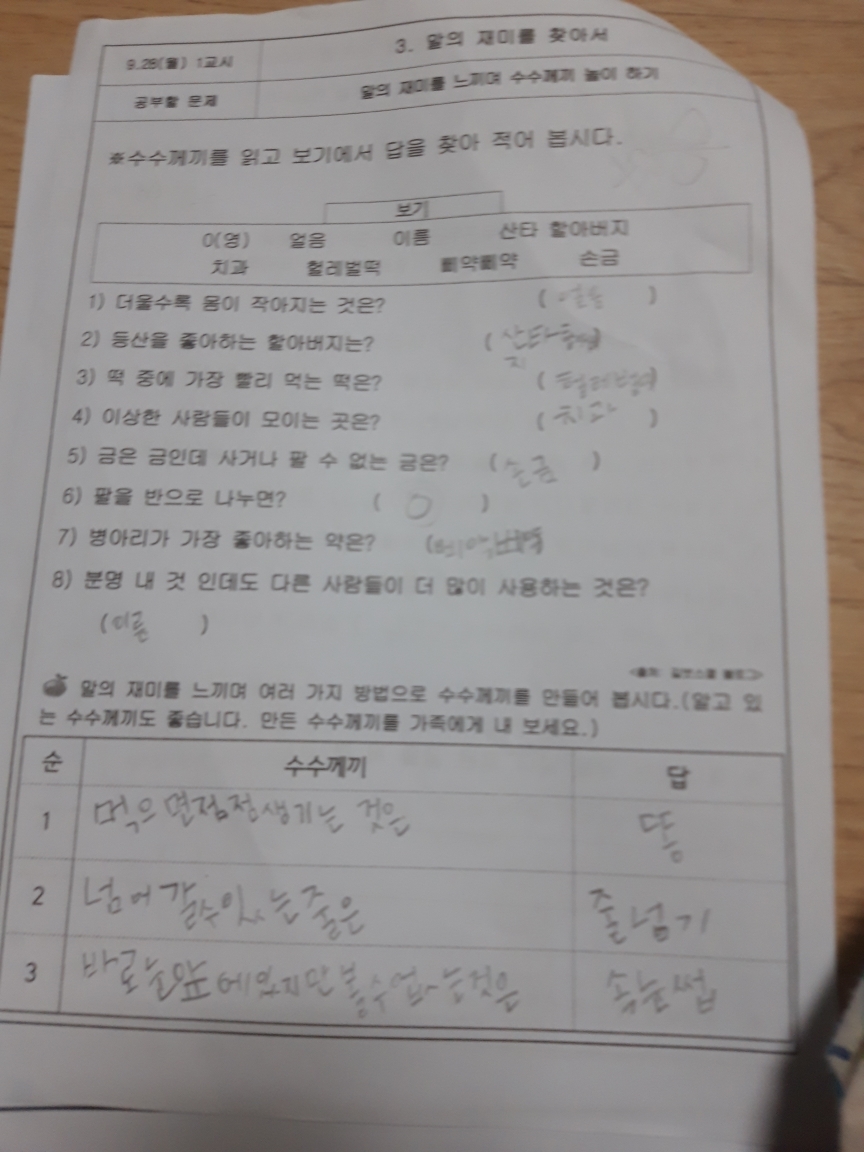 9.28(월) 1교시
3. 말의 재미를 찾아서
공부할 문제
말의 재미를 느끼며 수수께끼 놀이 하기
※수수께끼를 읽고 보기에서 답을 찾아 적어 봅시다.
보기
이(영) 얼음 이름 산타 할아버지
치과 헐레벌떡 삐약삐약 손금
1) 더울수록 몸이 작아지는 것은? (얼음)
2) 등산을 좋아하는 할아버지는? (산타
3) 떡 중에 가장 빨리 먹는 떡은? (헐레벌떡)
4) 이상한 사람들이 모이는 곳은? (치과)
5) 금은 금인데 사거나 팔 수 없는 금은? (손금)
6) 팔을 반으로 나누면? (0)
7) 병아리가 가장 좋아하는 약은? (삐약삐약)
8) 분명 내 것 인데도 다른 사람들이 더 많이 사용하는 것은?
(이름)
말의 재미를 느끼며 여러 가지 방법으로 수수께끼를 만들어 봅시다.(알고 있
는 수수께끼도 좋습니다. 만든 수수께끼를 가족에게 내 보세요.)
순 수수께끼 답
1 먹으면점점생기는 것은 똥
2 넘어갈수있는줄은 줄넘기
3 바로눈앞에있지만볼수없는것은 속눈썹